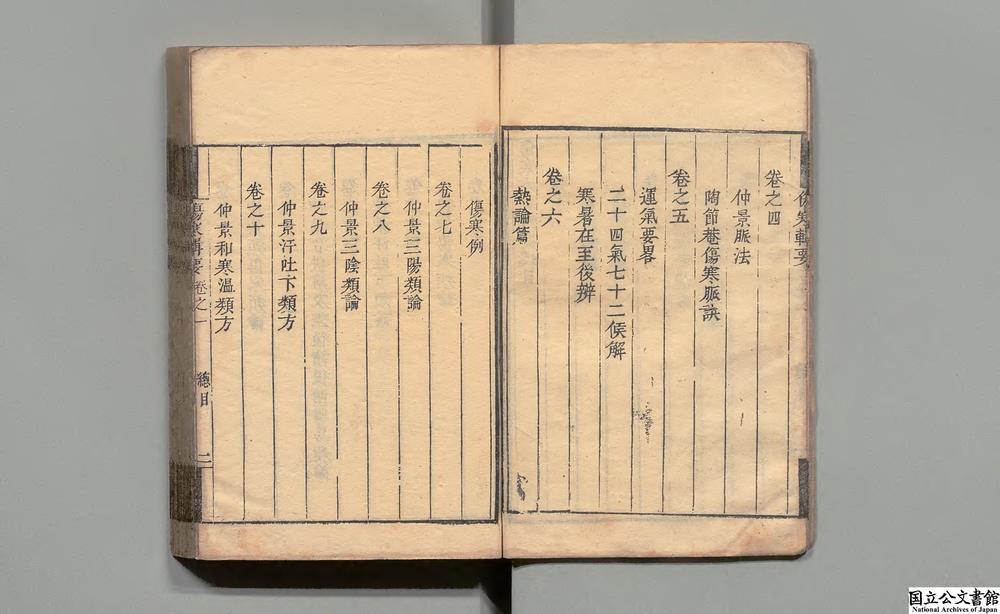 傷寒輯要
卷之四
仲景脈法
陶節菴傷寒脈訣
卷之五
運氣要畧
二十四氣七十二候解
寒暑在至後辨
卷之六
熱論篇
傷寒例
卷之七
仲景三陽類論
卷之八
仲景三陰類論
卷之九
仲景汗吐下類方
卷之十
仲景和寒溫類方
傷寒輯要 卷之一 總目 二
国立公文書館
National Archives of Japan